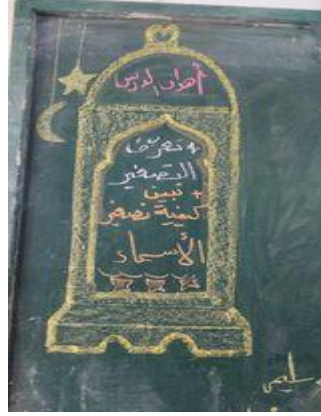 أهداف الدرس
+ تعرف
التصغير
+ تبين
كيفية تصغير
الأسماء